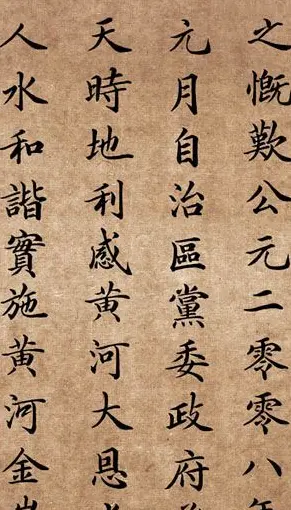 之慨歎公元二零零八年
元月自治區黨委政府
天時地利感黃河大恩
人水和諧實施黃河金岸